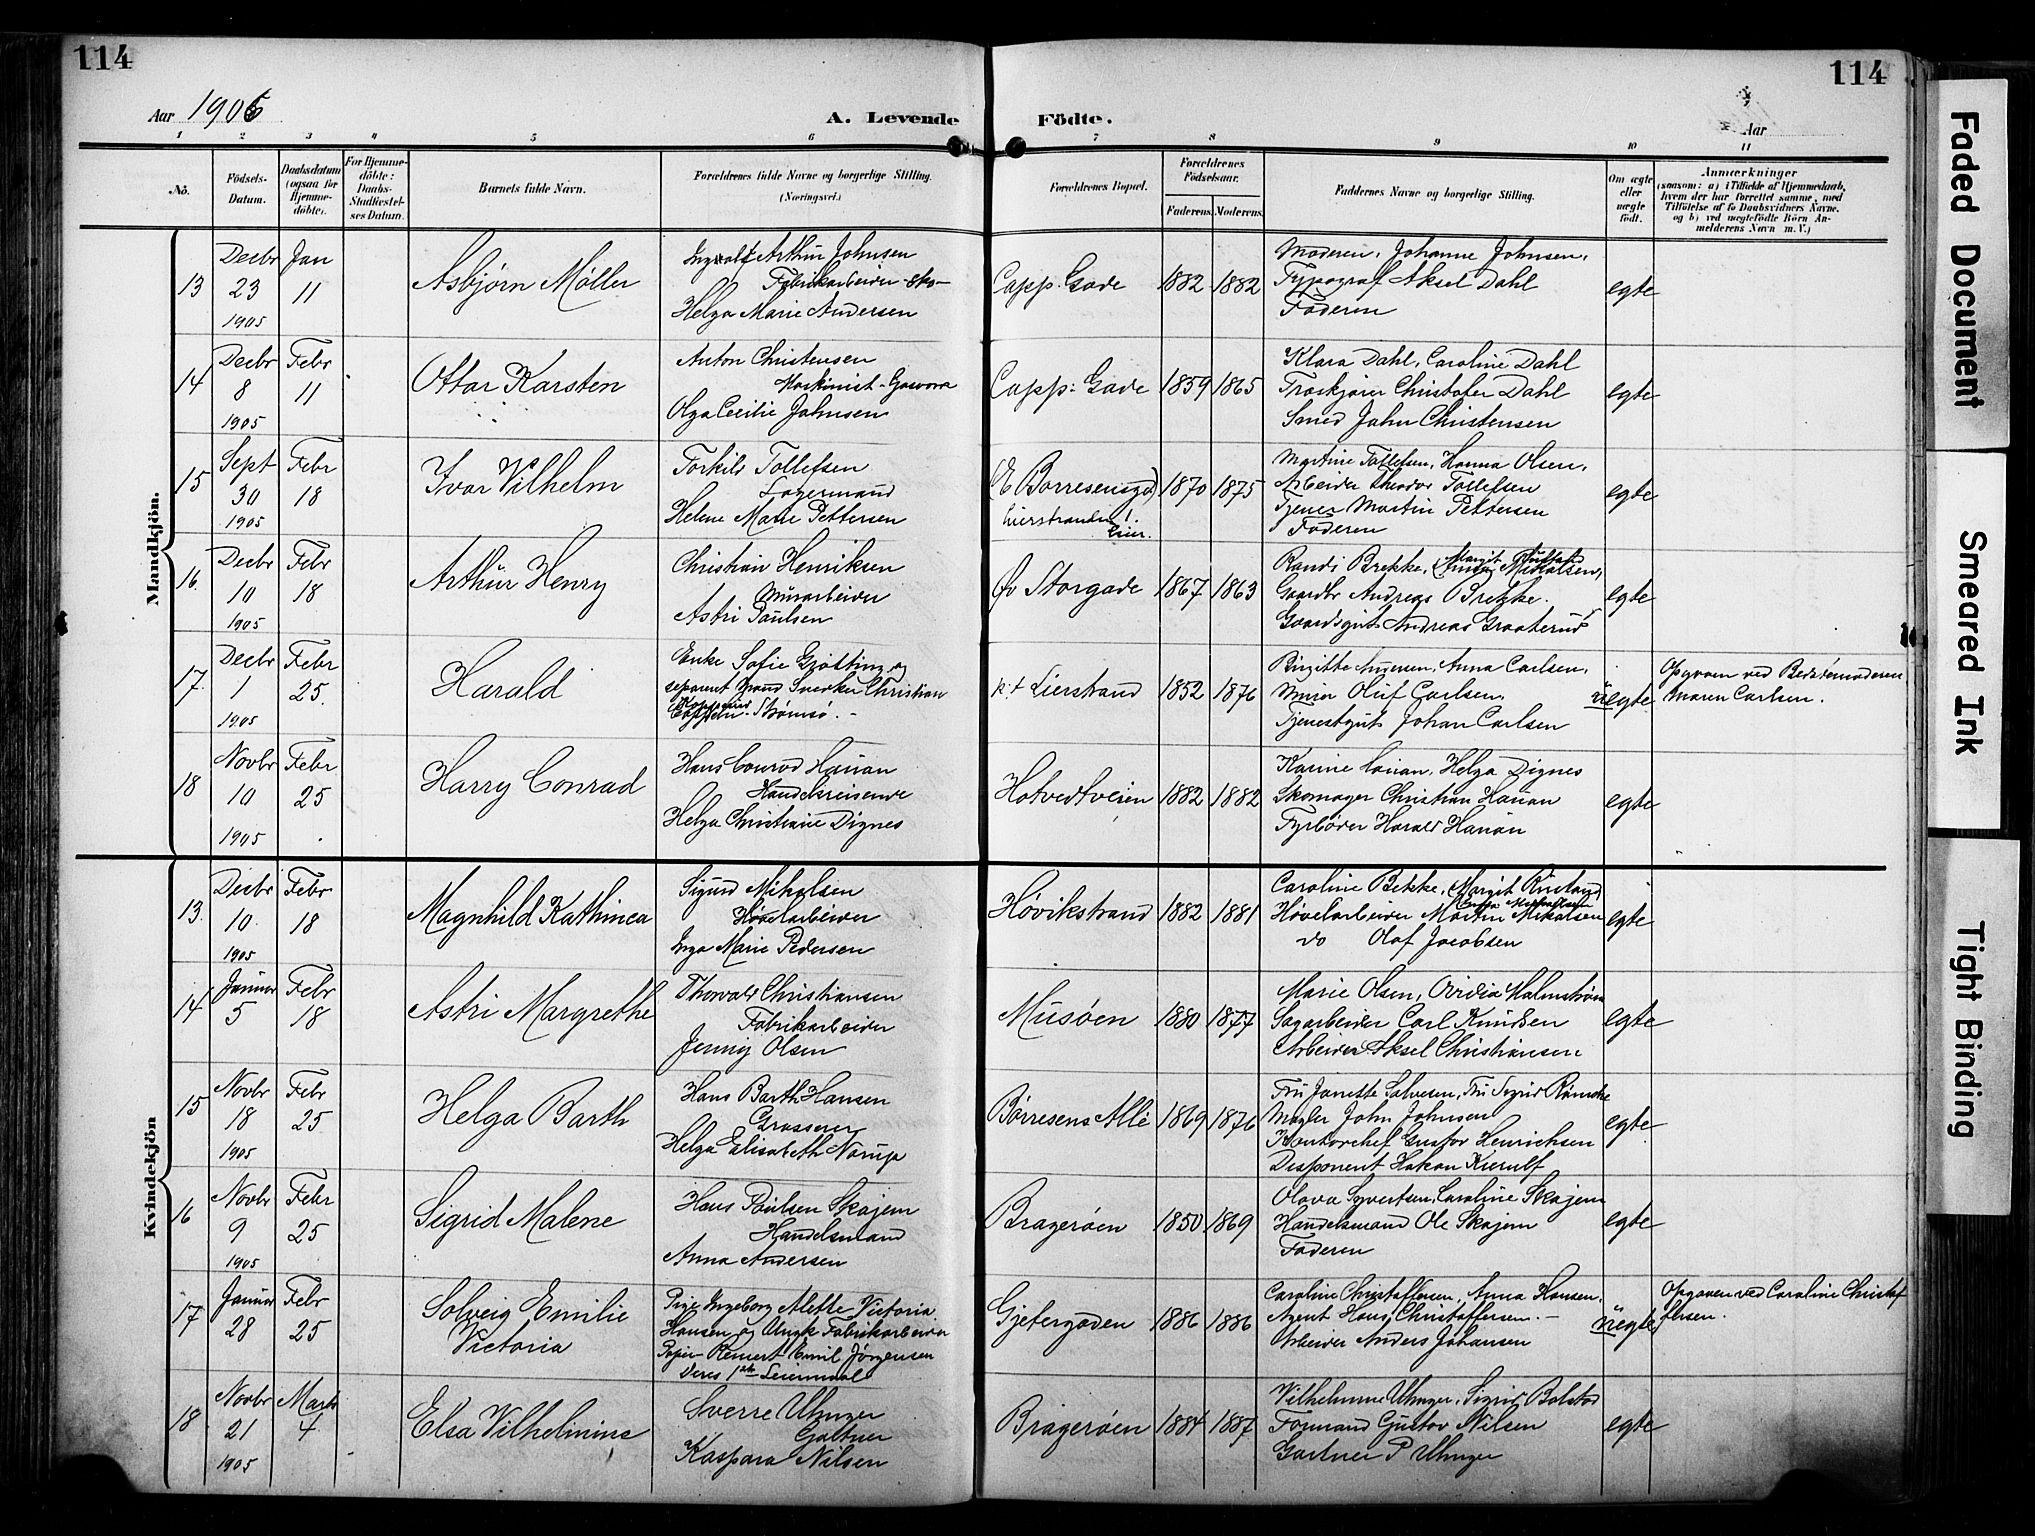 114
114
Aar 1906
A. Levende Födte.
Aar
1 2 3 4 5 6 7 8 9 10 11
No.
Födsels-Datum.
Daabsdatum (ogsaa for Hjemme-döbte).
For Hjemme-döbte: Daabs-Stadfæstel-ses Datum.
Barnets fulde Navn.
Forældrenes fulde Navne og borgerlige Stilling. (Næringsvei.)
Forældrenes Bopæl.
Forældrenes Födselsaar.
Faderens. Moderens.
Faddernes Navne og borgerlige Stilling.
Om ægte eller uægte födt.
Anmærkninger
(saasom: a) i Tilfælde af Hjemmedaab,
hvem der har forrettet samme, med
Tilföielse af to Daabsvidners Navne,
og b) ved uægtefödte Börn An-
melderens Navn m. V.)
Mandkjön.
13
Decbr 23 1905
Jan 11
Asbjørn Møller
Ingvolf Arthur Johnsen
Fabrikarbeider - Sko-
Helga Marie Andersen
Capp. Gade
1882 1882
Moderen, Johanne Johnsen,
Typograf Aksel Dahl
Faderen
egte
14
Decbr 8 1905
Febr 11
Ottar Karsten
Anton Christensen
Maskinist - Gasværk
Olga Cecilie Johnsen
Capp: Gade
1859 1865
Klara Dahl, Caroline Dahl
Træskjærer Christofer Dahl
Smed John Christensen
egte
15
Sept 30 1905
Febr 18
Ivar Vilhelm
Torkils Tollefsen
Lagermand
Helene Marie Pettersen
(E Børresensgd)
Lierstranden!
Lier.
1870 1875
Martine Tollefsen, Hanna Olsen,
Arbeider Theodor Tollefsen
Tjener Martin Pettersen
Faderen
egte
16
Decbr 10 1905
Febr 18
Arthur Henry
Christian Henriksen
Murarbeider
Astri Paulsen
Øv Storgade
1867 1863
Randi Brekke, Mikalsen,
Gaardbr Andreas Brekke.
Gaardsgut Andreas Graaterud
egte
17
Decbr 1 1905
Febr 25.
Harald
Enke Sofie Grøtting og
separeret Mand Snerker Christian
Strømsø. -
p:t Lierstrand
1852 1876
Birgitte Andersen, Anna Carlsen,
Murer Oluf Carlsen,
Tjenestgut Johan Carlsen
uegte
Opgiven ved Bedstemoderen
Maren Carlsen.
18
Novbr 10 1905
Febr 25
Harry Conrad
Hans Conrad Hauan
Handelsreisende
Helga Christiane Dignes
Hotvedtveien
1882 1882
Karine Hauan, Helga Dignes
Skomager Christian Hauan
Fyrbøder Harald Hauan
egte
Kvindekjön
13
Decbr 10 1905
Febr 18
Magnhild Kathinca
Sigurd Mikalsen
Høvelarbeider
Inga Marie Pedersen
Høvikstrand
1882 1881
Caroline Bekke, Margit Rustand,
Høvelarbeider Martin Mikalsen
do Olaf Jacobsen
egte
14
Januar 5
Febr 18
Astri Margrethe
Thorvald Christiansen
Fabrikarbeider
Jenny Olsen
Musøen
1880 1877
Marie Olsen, Ovidia Malmstrøm
Sagarbeider Carl Knudsen
Arbeider Aksel Christiansen
egte
15
Novbr 18 1905
Febr 25
Helga Barth
Hans Barth Hansen
Grosserer
Helga Elisabeth Norup
Børresens Allé
1869 1876
Fru Janette Salvesen, Fru Sigrid Rømcke
Mægler John Johnsen
Kontorchef Gustav Henrichsen
Disponent Hakon Kierulf
egte
16
Novbr 9 1905
Febr 25
Sigrid Malene
Hans Paulsen Skajem
Handelsmand
Anna Andersen
Bragerøen
1850 1869
Olava Syvertsen, Caroline Skajem
Handelsmand Ole Skajem
Faderen
egte
17
Januar 28
Febr 25
Solveig Emilie
Victoria
Pige Ingeborg Alette Victoria
Hansen og Ungk Fabrikarbeider
Papir - Reinert Emil Jørgensen
Deres 1ste Leiermaal
Gjetergaden
1886 1886
Caroline Christoffersen, Anna Hansen,
Agent Hans Christoffersen. -
Arbeider Anders Johansen
uegte
Opgiven ved Caroline Christof
fersen.
18
Novbr 21 1905
Marts 4
Elsa Vilhelmine
Sverre Unger
Gartner
Kaspara Nilsen
Bragerøen
1884 1887
Vilhelmine Unger, Sigrid Bolstad
Formand Gustav Nilsen
Gartner P Unger
egte
Faded Document
Smeared Ink
Tight Binding